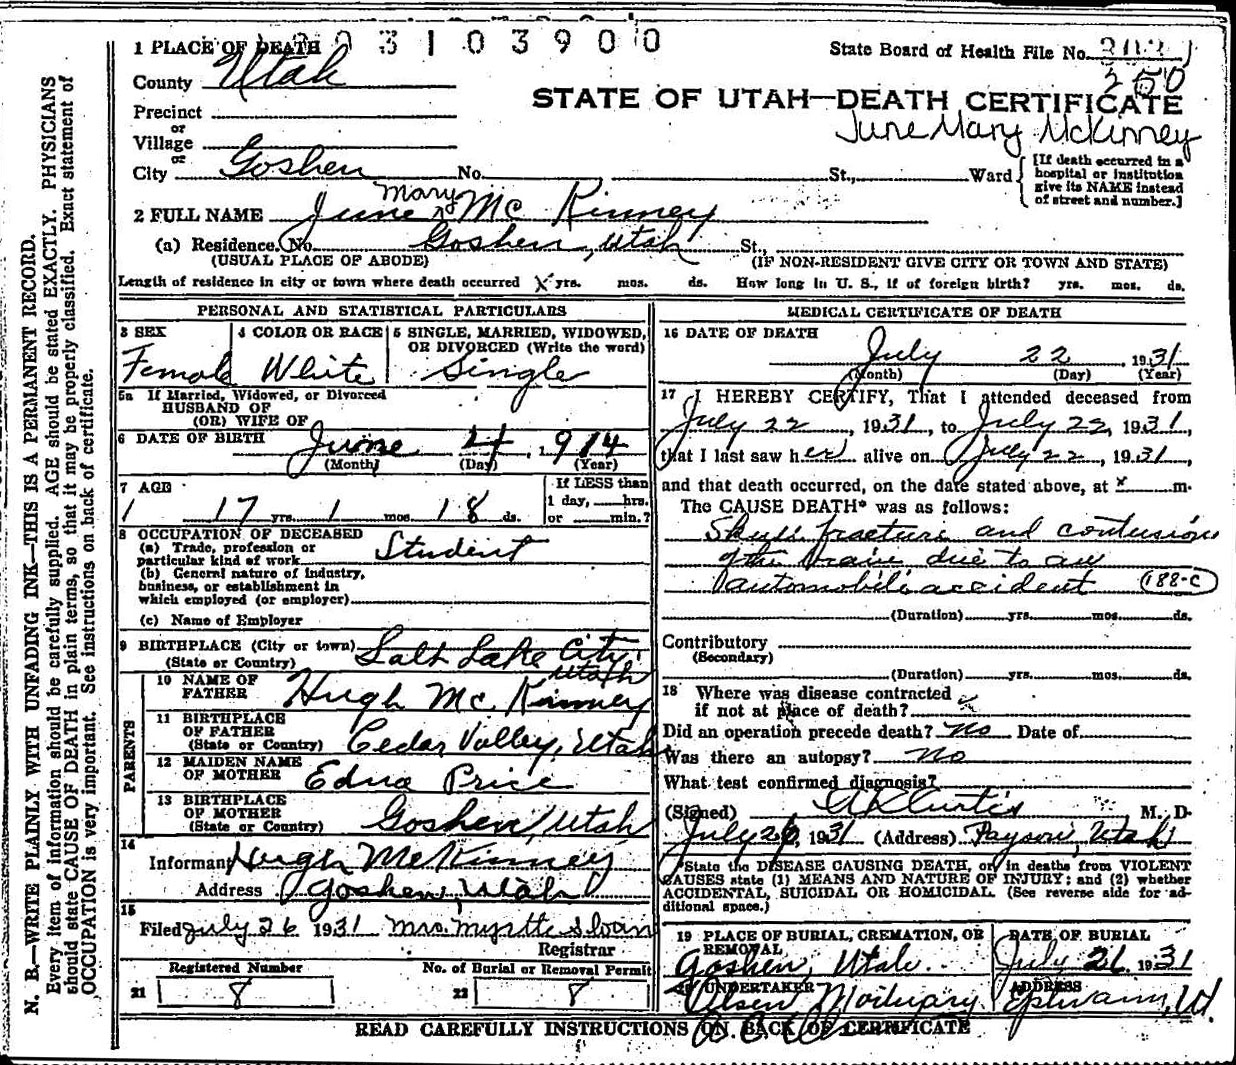 1 PLACE OF DEATH 3 1 0 3 9 0 0
State Board of Health File No.
County Utah
250
STATE OF UTAH—DEATH CERTIFICATE
Precinct
June Mary McKinney
or
Village
or
City Goshen No. St., Ward
[If death occurred in a hospital or institution give its NAME instead of street and number.]
2 FULL NAME June Mary Mc Kinney
(a) Residence. No. Goshen, Utah St.,
(USUAL PLACE OF ABODE) (IF NON-RESIDENT GIVE CITY OR TOWN AND STATE)
Length of residence in city or town where death occurred x yrs. mos. ds. How long in U. S., if of foreign birth? yrs. mos. ds.
N. B.—WRITE PLAINLY WITH UNFADING INK—THIS IS A PERMANENT RECORD.
Every item of information should be carefully supplied. AGE should be stated EXACTLY. PHYSICIANS
should state CAUSE OF DEATH in plain terms, so that it may be properly classified. Exact statement of
OCCUPATION is very important. See instructions on back of certificate.
PERSONAL AND STATISTICAL PARTICULARS
3 SEX
Female
4 COLOR OR RACE
White
5 SINGLE, MARRIED, WIDOWED,
OR DIVORCED (Write the word)
Single
5a If Married, Widowed, or Divorced
HUSBAND OF
(OR) WIFE OF
6 DATE OF BIRTH June 4, 1914
(Month) (Day) (Year)
7 AGE
17 yrs. 1 mos. 18 ds.
If LESS than
1 day, hrs.
or min.?
8 OCCUPATION OF DECEASED
(a) Trade, profession or
particular kind of work Student
(b) General nature of industry,
business, or establishment in
which employed (or employer)
(c) Name of Employer
9 BIRTHPLACE (City or town) Salt Lake City,
(State or Country) Utah
PARENTS
10 NAME OF
FATHER Hugh Mc Kinney
11 BIRTHPLACE
OF FATHER
(State or Country) Cedar Valley, Utah
12 MAIDEN NAME
OF MOTHER Edna Price
13 BIRTHPLACE
OF MOTHER
(State or Country) Goshen, Utah
14
Informant Hugh McKinney
Address Goshen, Utah
15
Filed July 26 1931 Mrs. Myrtle Sloan
Registrar
Registered Number No. of Burial or Removal Permit
21 8 22 8
MEDICAL CERTIFICATE OF DEATH
16 DATE OF DEATH
July 22 1931
(Month) (Day) (Year)
17 I HEREBY CERTIFY, That I attended deceased from
July 22, 1931, to July 22, 1931,
that I last saw her alive on July 22, 1931,
and that death occurred, on the date stated above, at x m.
The CAUSE DEATH* was as follows:
Skull fracture and contusion
of the brain due to an
automobile accident 188-C
(Duration) yrs. mos. ds.
Contributory
(Secondary)
(Duration) yrs. mos. ds.
18 Where was disease contracted
if not at place of death?
Did an operation precede death? No Date of
Was there an autopsy? No
What test confirmed diagnosis?
(Signed) A L Curtis M. D.
July 26, 1931 (Address) Payson, Utah
*State the DISEASE CAUSING DEATH, or, in deaths from VIOLENT
CAUSES state (1) MEANS AND NATURE OF INJURY; and (2) whether
ACCIDENTAL, SUICIDAL OR HOMICIDAL. (See reverse side for ad-
ditional space.)
19 PLACE OF BURIAL, CREMATION, OR
REMOVAL
Goshen, Utah
DATE OF BURIAL
July 26 1931
UNDERTAKER
Olsen Mortuary
ADDRESS
Ephraim, Ut.
READ CAREFULLY INSTRUCTIONS ON BACK OF CERTIFICATE